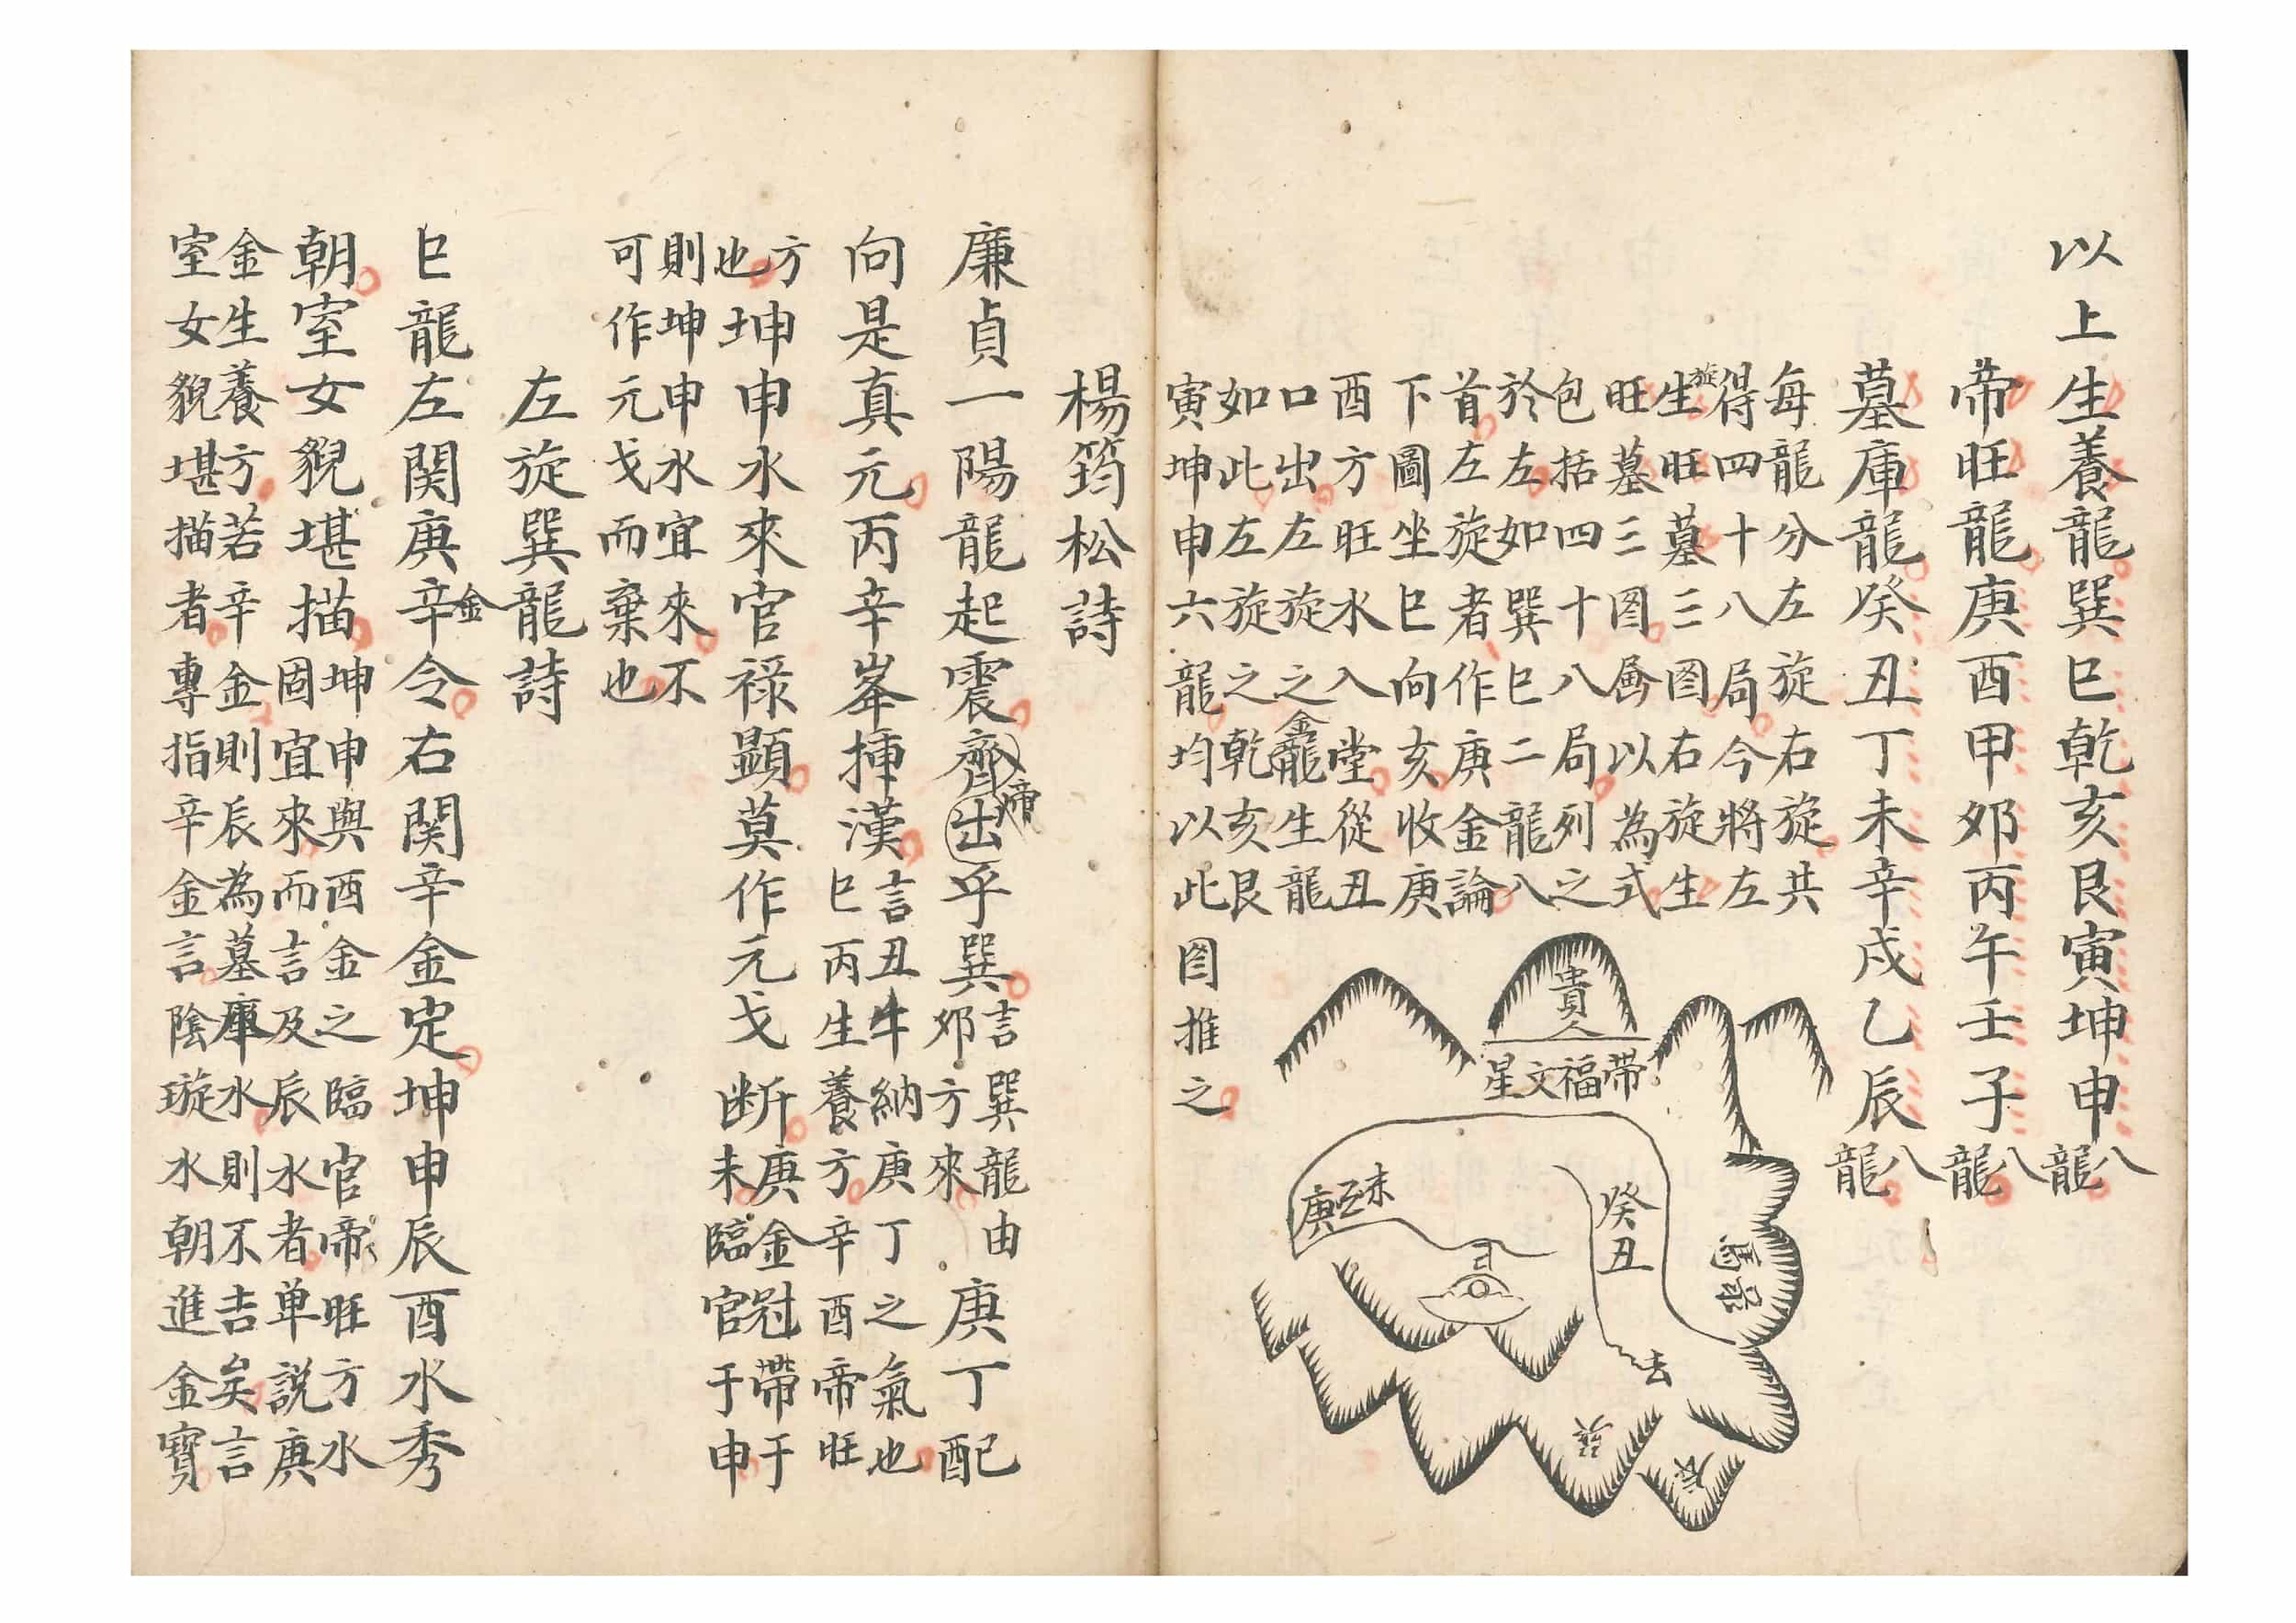 以上生養龍巽巳乾亥艮寅坤申八龍
帝旺龍庚酉甲卯丙午壬子八龍
墓庫龍癸丑丁未辛戌乙辰八龍
每龍分左旋右旋共
得四十八局今將左
旋生旺墓三图右旋生
旺墓三图畧以為式
包括四十八局列之
於左如巽巳二龍八
首左旋者作庚金論
下圖坐巳向亥收庚
酉方旺水入堂從丑
口出左旋之金龍生龍
如此左旋之乾亥艮
寅坤申六龍均以此
图推之
貴人
帶福文星
未
庚
癸丑
馬
去
巽
辰
楊筠松詩
廉貞一陽龍起震齊出乎巽言巽龍由
卯方來庚丁配
向是真元丙辛峯揷漢言丑牛納庚丁之氣也
巳丙生養方辛酉帝旺
方
也坤申水來官祿顯莫作元戈断庚金冠帶于
未臨官于申
則坤申水宜來不
可作元戈而棄也
左旋巽龍詩
巳龍左関庚辛金令右関辛金定坤申辰酉水秀
朝室女貎堪描坤申與酉金之臨官帝旺方水
固宜來而言及辰水者单説庚
金生養方若辛金則辰為墓庫水則不吉矣言
室女貎堪描者專指辛金言陰璇水朝進金寳